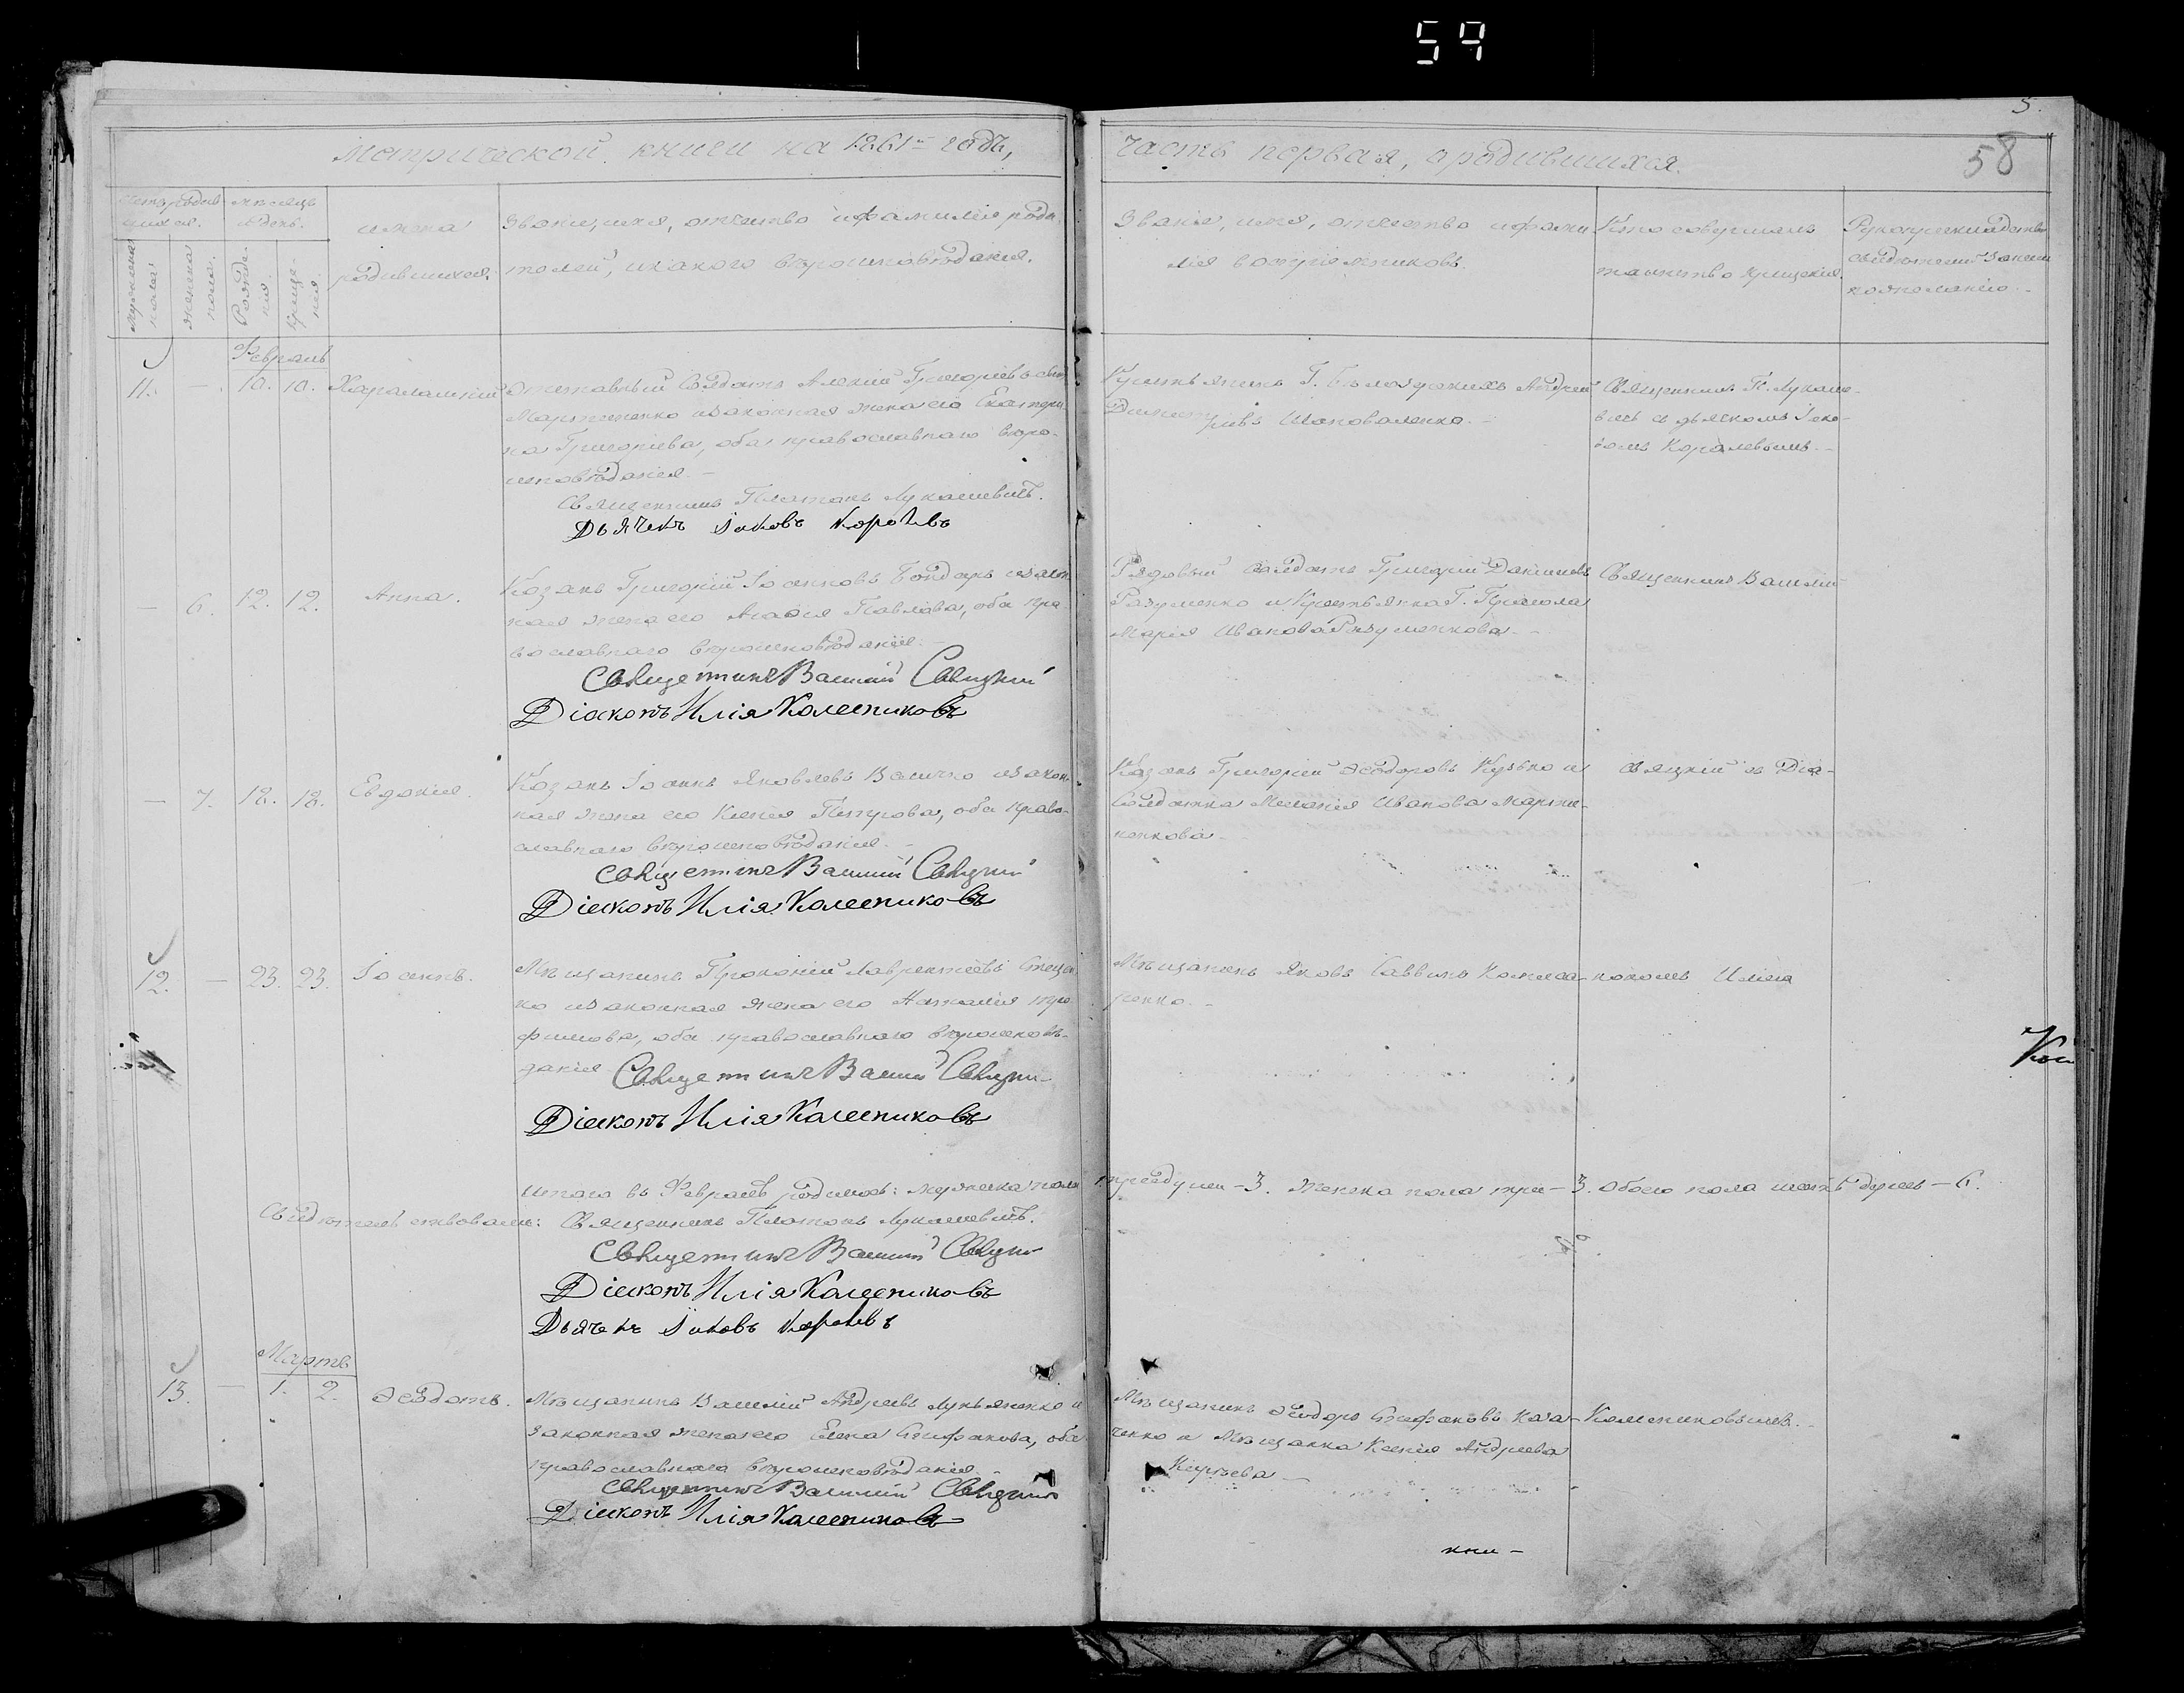 59
5.
58
Метрической книги на 1861й годъ,
часть первая, о родившихся.
Счетъ родив-
шихся.
Мужеска пола.
Женска пола.
Мѣсяцъ
и день.
Рожде-
нія.
Креще-
нія.
имена
родившихся.
Званіе, имя, отчество и фамилія роди-
телей, и какого вѣроисповѣданія.
Званіе, имя, отчество и фами-
лія воспріемниковъ.
Кто совершалъ
таинство крещенія
Рукоприкладство
свидѣтелей записи
по желанію.
Февраль
11. — 10. 10. Харалампій
Отставный Солдатъ Алексій Григоріевъ сынъ
Мартиненко и законная жена его Екатери-
на Григоріева, оба православнаго вѣро-
исповѣданія.
Священникъ Платонъ Лукашевичъ.
Дьячекъ Іаковъ Королевъ
Крестьянинъ Г. Бѣлозерскихъ Андрей
Димитріевъ Шаповаленко.
Священникъ П. Лукаше-
вичь съ дьячкомъ Іако-
вомъ Королевымъ.
— 6. 12. 12. Анна.
Козакъ Григорій Іоанновъ Бондарь и закон-
ная жена его Агафія Павлова, оба пра-
вославнаго вѣроисповѣданія.
Священникъ Василій Свѣцкій
Діаконъ Илія Колесниковъ
Рядовый Солдатъ Григорій Даниловъ
Разуменко и Крестьянка Г.
Марія Иванова Разуменкова.
Священникъ Василій
— 7. 18. 18. Евдокія.
Козакъ Іоаннъ Яковлевъ Величко и закон-
ная жена его Ксенія Петрова, оба право-
славнаго вѣроисповѣданія.
Священникъ Василій Свѣцкій
Діаконъ Илія Колесниковъ
Козакъ Григорій Ѳеодоровъ Кузько и
Солдатка Меланія Иванова Марти-
ненкова
Свѣцкій съ Діа-
12. — 23. 23. Іоаннъ.
Мѣщанинъ Прокопій Лаврентіевъ Стецен-
ко и законная жена его Наталія Тро-
фимова, оба православнаго вѣроисповѣ-
данія
Священникъ Василій Свѣцкій
Діаконъ Илія Колесниковъ
Мѣщанинъ Яковъ Саввинъ
ренко.
кономъ Иліею
Итого въ Февралѣ родилось: мужеска пола три души — 3. женска пола три — 3. обоего пола шесть душъ — 6.
Свидѣтельствовали: Священникъ Платонъ Лукашевичъ.
Священникъ Василій Свѣцкій
Діаконъ Илія Колесниковъ
Дьячекъ Іаковъ Королевъ
Мартъ
13. — 1. 2. Ѳеодотъ.
Мѣщанинъ Василій Андреевъ Лукьяненко и
законная жена его Елена Стефанова, оба
православнаго вѣроисповѣданія
Священникъ Василій Свѣцкій
Діаконъ Илія Колесниковъ
Мѣщанинъ Ѳеодоръ Стефановъ Каза-
ченко и Мѣщанка Ксенія Андреева
Колесниковымъ.
кни-